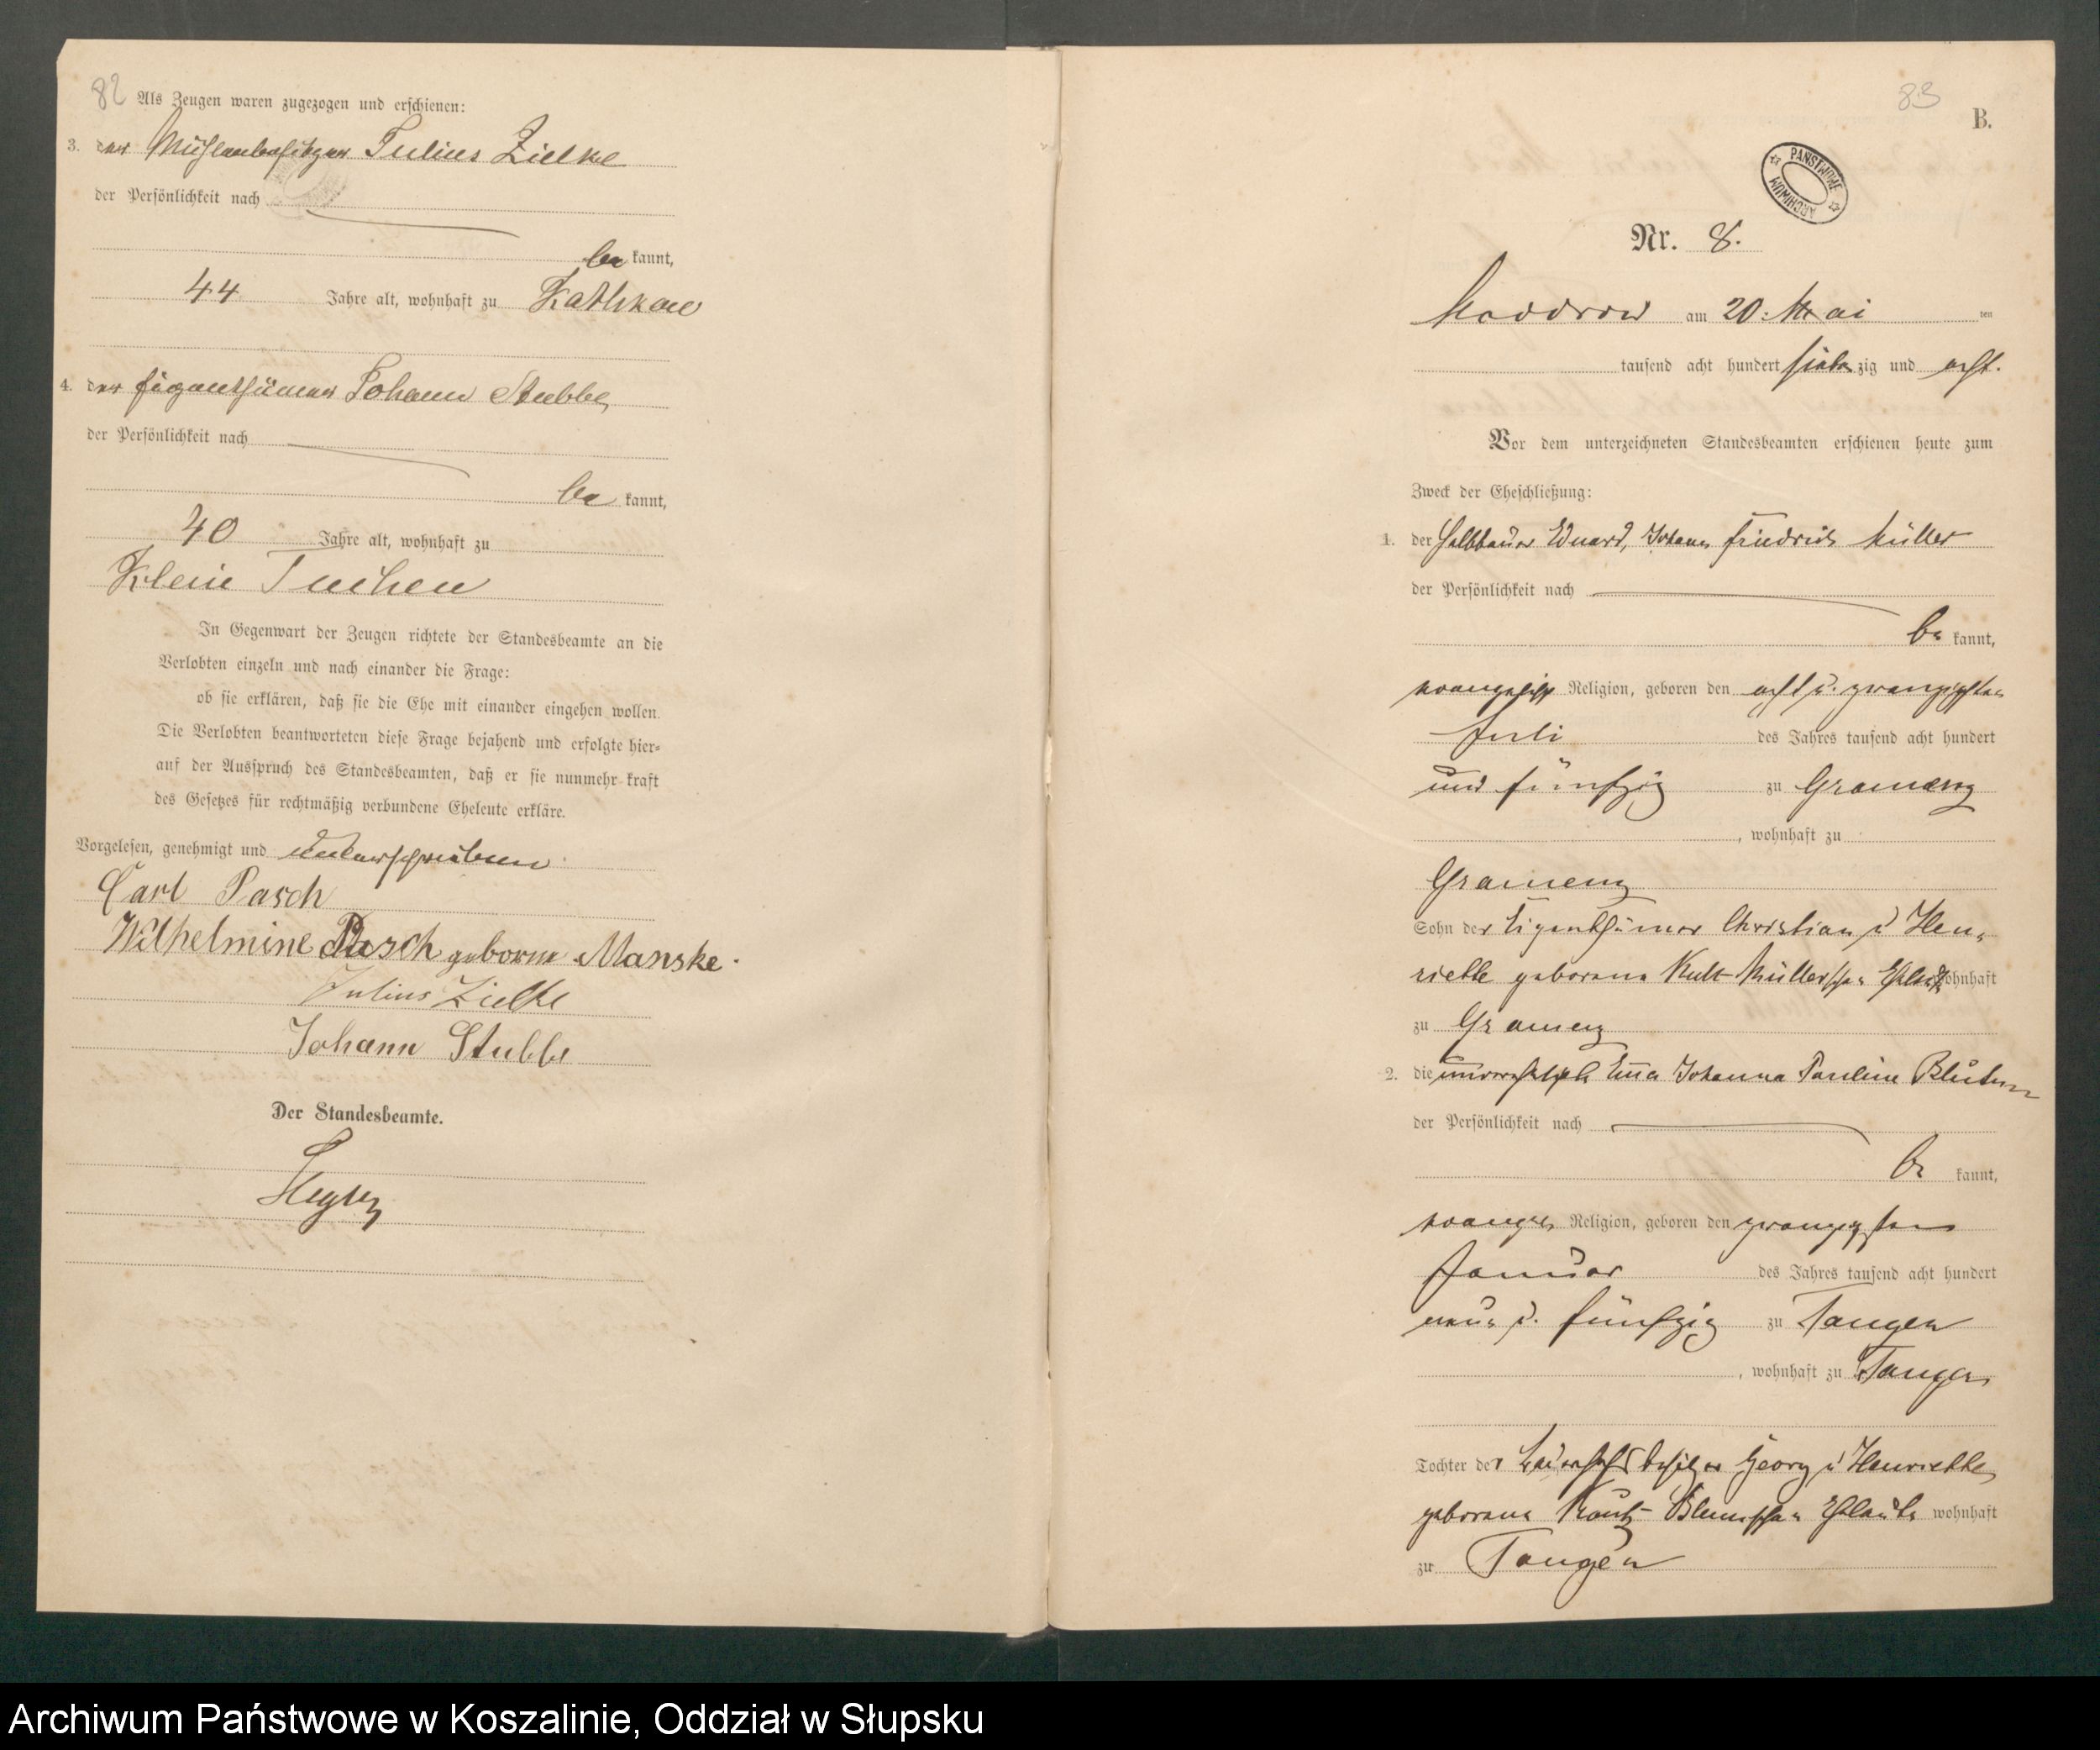 82
Als Zeugen waren zugezogen und erschienen:
3. der Mühlenbesitzer Julius Zielke
der Persönlichkeit nach
be kannt,
44 Jahre alt, wohnhaft zu Kathkow
4. der Eigenthümer Johann Stubbe,
der Persönlichkeit nach
be kannt,
40 Jahre alt, wohnhaft zu
Klein Tuchen
In Gegenwart der Zeugen richtete der Standesbeamte an die
Verlobten einzeln und nach einander die Frage:
ob sie erklären, daß sie die Ehe mit einander eingehen wollen.
Die Verlobten beantworteten diese Frage bejahend und erfolgte hier=
auf der Ausspruch des Standesbeamten, daß er sie nunmehr kraft
des Gesetzes für rechtmäßig verbundene Eheleute erkläre.
Vorgelesen, genehmigt und unterschrieben
Carl Pasch
Wilhelmine Pasch geborne Manske.
Julius Zielke
Johann Stubbe
Der Standesbeamte.
83
B.
PAŃSTWOWE ARCHIWUM
Nr. 8.
Moddrow am 20. Mai ten
tausend acht hundert sieben zig und acht.
Vor dem unterzeichneten Standesbeamten erschienen heute zum
Zweck der Eheschließung:
1. der Halbbauer Eduard, Johann Friedrich Müller
der Persönlichkeit nach
be kannt,
evangelisch Religion, geboren den acht u. zwanzigsten
Juli des Jahres tausend acht hundert
und fünfzig zu Gramenz
, wohnhaft zu
Gramenz
Sohn der Eigenthümer Christian u Hen-
riette geborene Müllerschen Ehleute wohnhaft
zu Gramenz
2. die unverehelichte Johanna Pauline
der Persönlichkeit nach
be kannt,
evangel Religion, geboren den zwanzigsten
Januar des Jahres tausend acht hundert
neun u. fünfzig zu Tangen
, wohnhaft zu Tangen
Tochter der Georg u Henriette,
geborene Ehleute wohnhaft
zu Tangen
Archiwum Państwowe w Koszalinie, Oddział w Słupsku